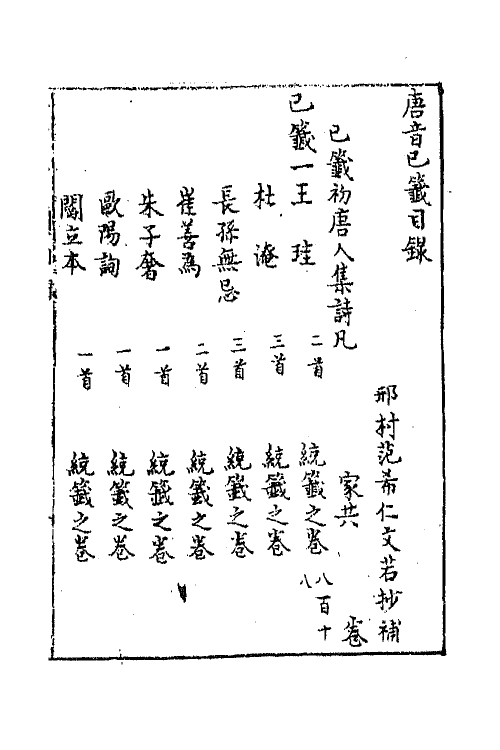 唐音已籤目錄
邢村范希仁文若抄補
已籤初唐人集詩凡　家共　卷
已籤一王珪　二首　統籤之卷八百十八
杜淹　三首　統籤之卷
長孫無忌　三首　統籤之卷
崔善為　二首　統籤之卷
朱子奢　一首　統籤之卷
歐陽詢　一首　統籤之卷
閻立本　一首　統籤之卷